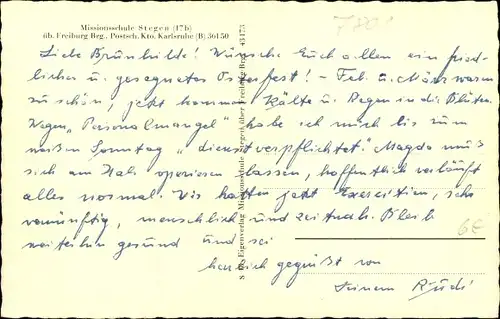 Missionsschule Stegen (17b)
üb. Freiburg Brg., Postsch. Kto. Karlsruhe (B) 36150
Liebe Brunhilde! Wünsche Euch allen ein fried-
liches u. gesegnetes Osterfest! - Feb. u. März waren
zu schön, jetzt kommen Kälte u. Regen in die Blüten.
Wegen „Personalmangel" habe ich mich bis zum
weißen Sonntag „dienstverpflichtet". Magda muß
sich am Hals operieren lassen, hoffentlich verläuft
alles normal. Wir hatten jetzt Exerzitien, sehr
vernünftig, menschlich und zeitnah. Bleib
weiterhin gesund und sei
herzlich gegrüßt von
Deinem Rudi
Eigenverlag Missionsschule Stegen über Freiburg Brg. 43473
6€